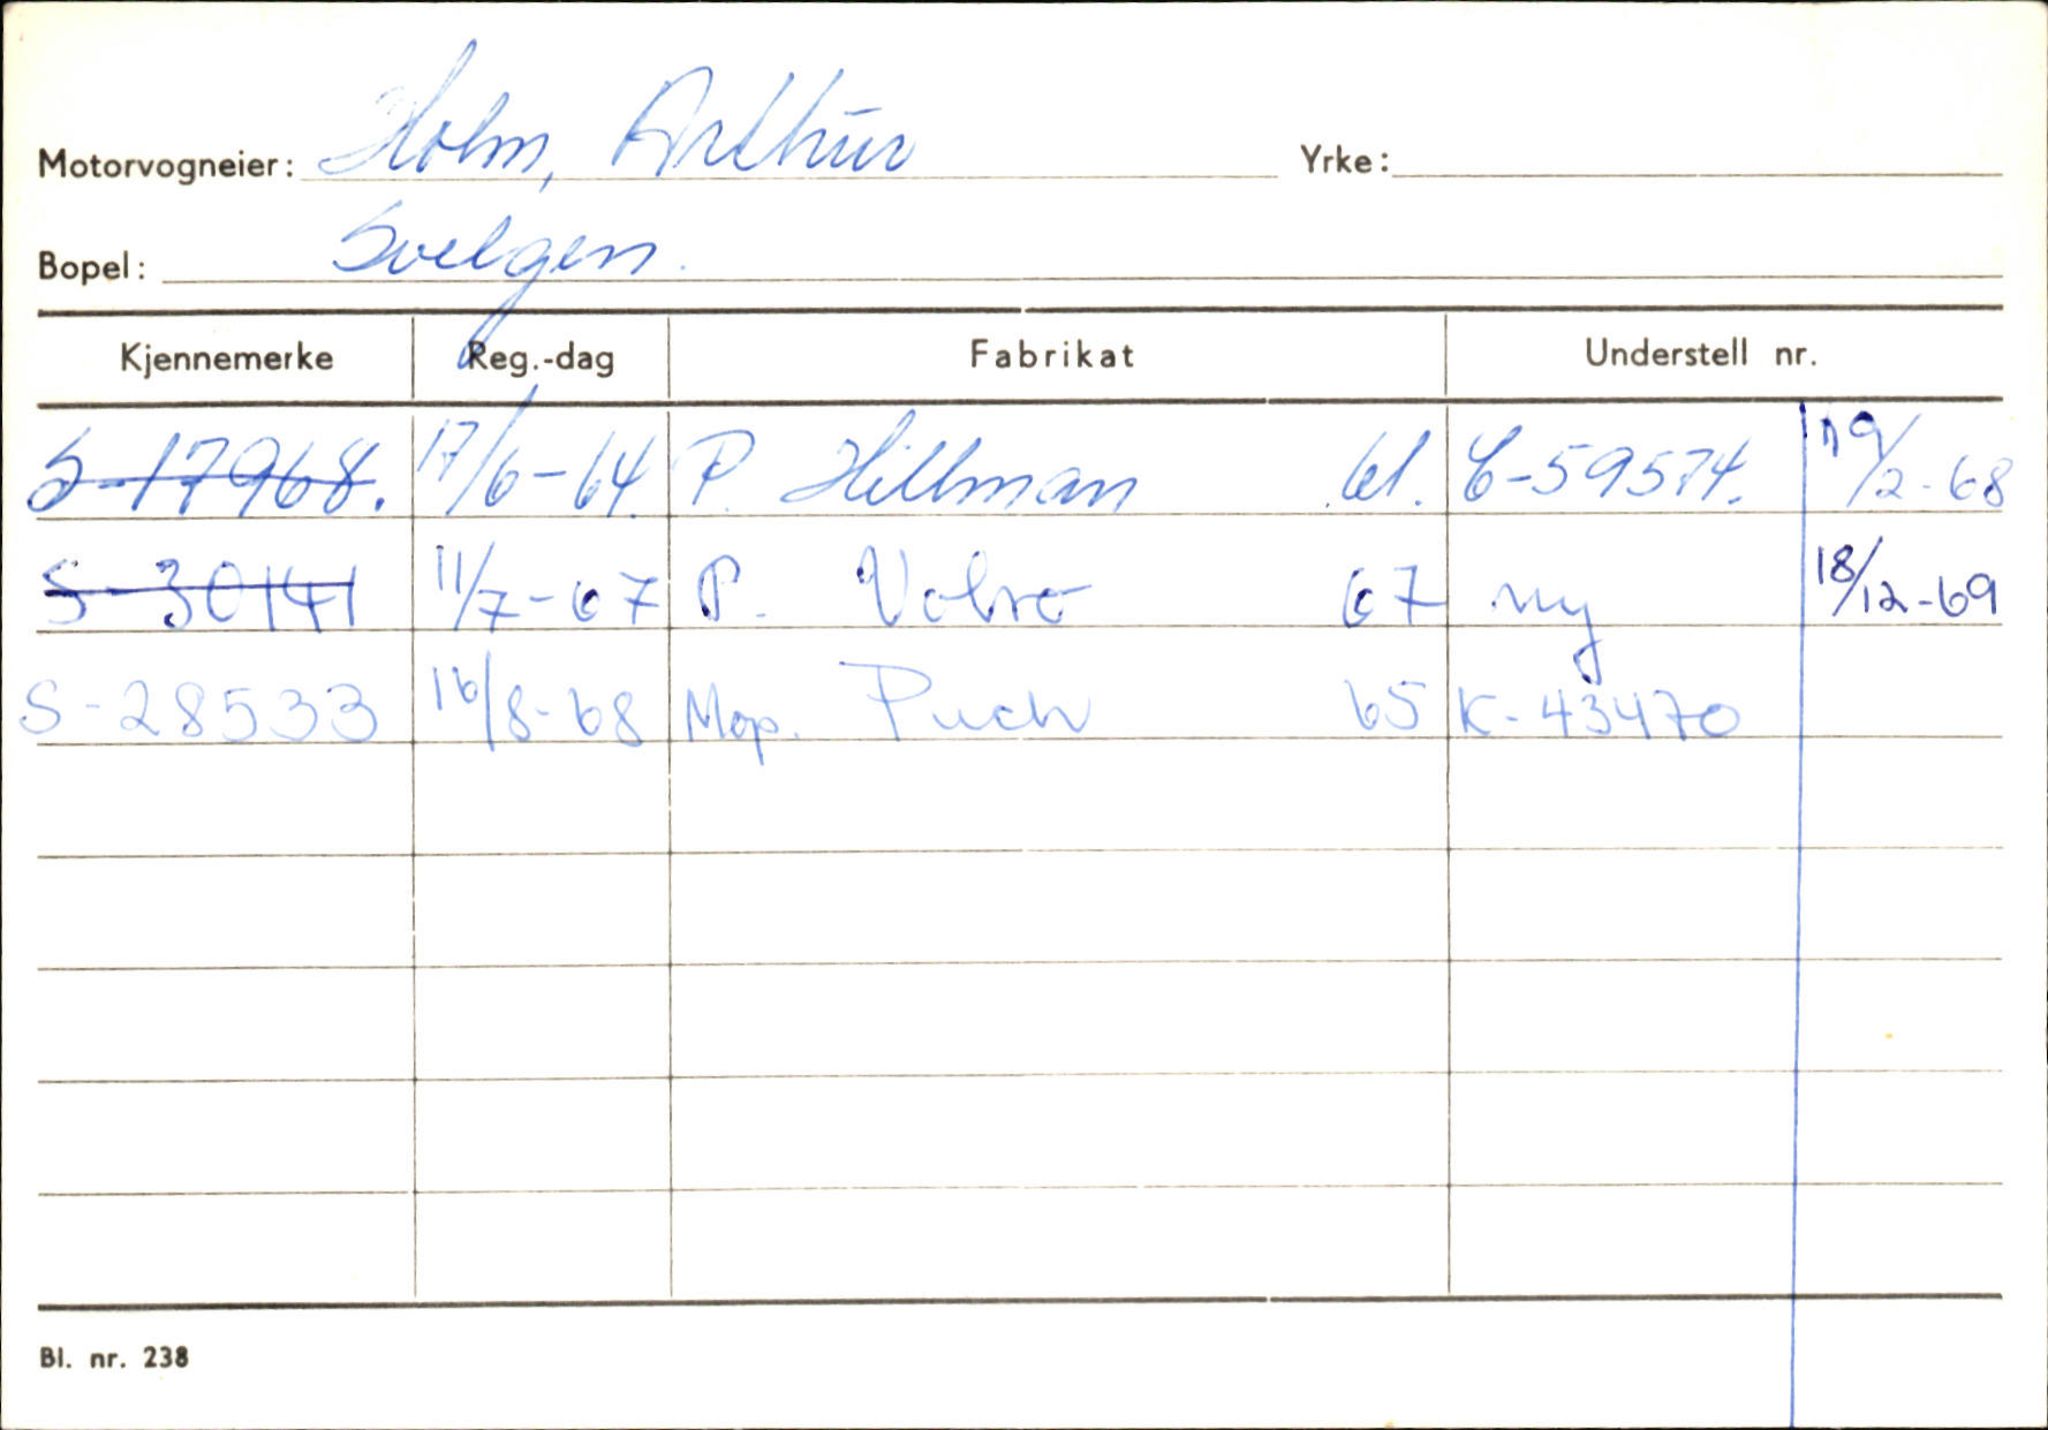 Motorvogneier: Holm, Arthur Yrke:
Bopel: Svelgen.
Kjennemerke Reg.-dag Fabrikat Understell nr.
S-17968. 17/6-64. P. Hillman 61. C-59574. 19/2-68
S-30141 11/7-67 P. Volvo 67 ny 18/12-69
S-28533 16/8-68 Mop. Puch 65 K-43470
Bl. nr. 238